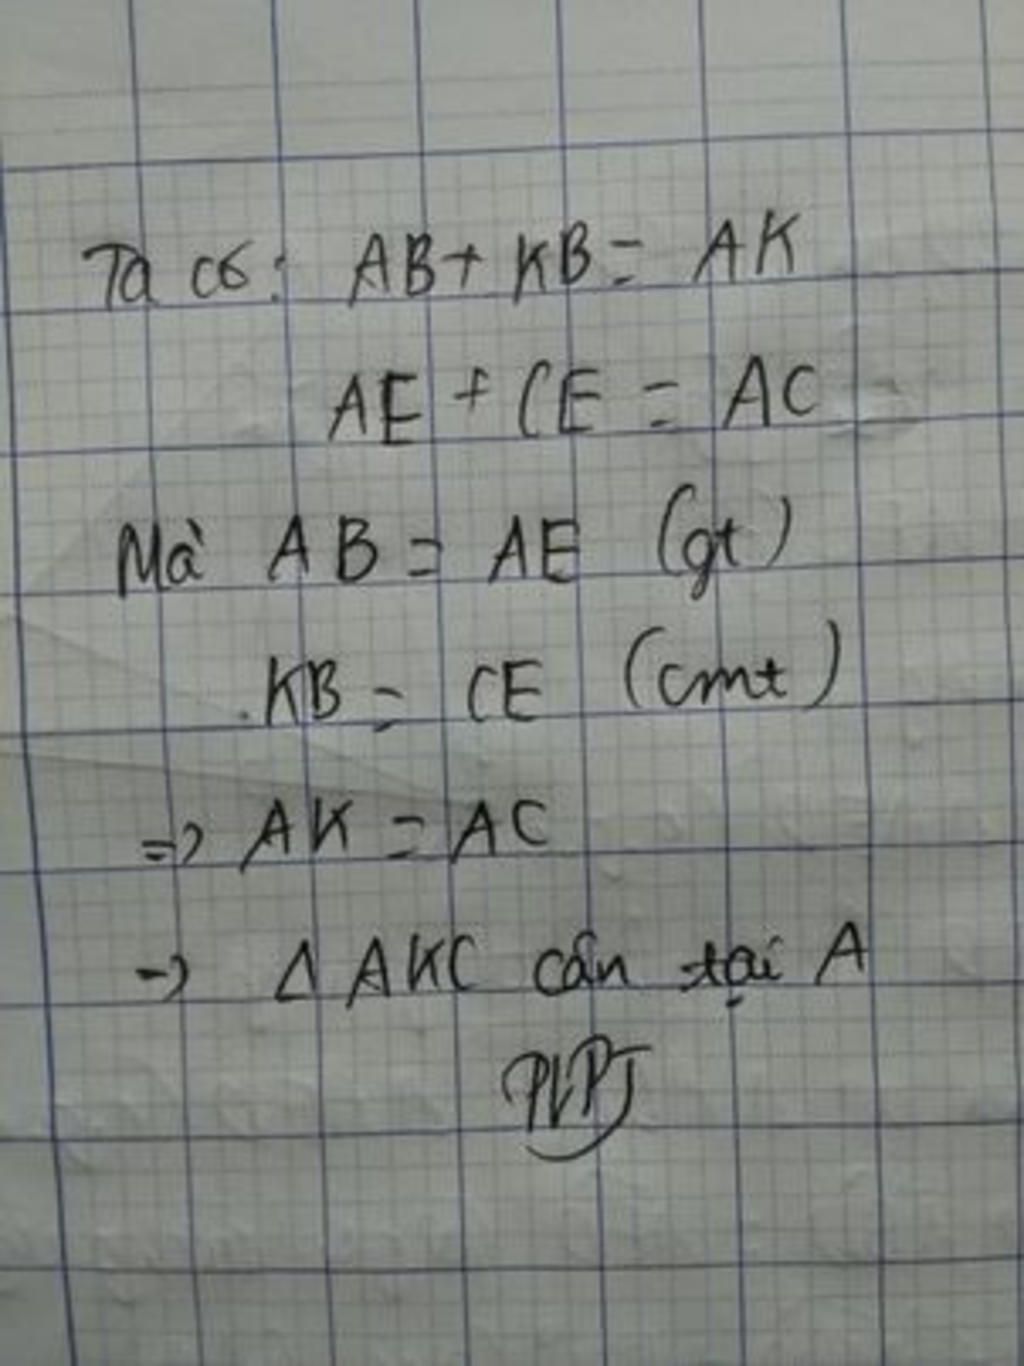 Ta có: AB + KB = AK
AE + CE = AC
Mà AB = AE (gt)
KB = CE (cmt)
=> AK = AC
-> Δ AKC cân tại A